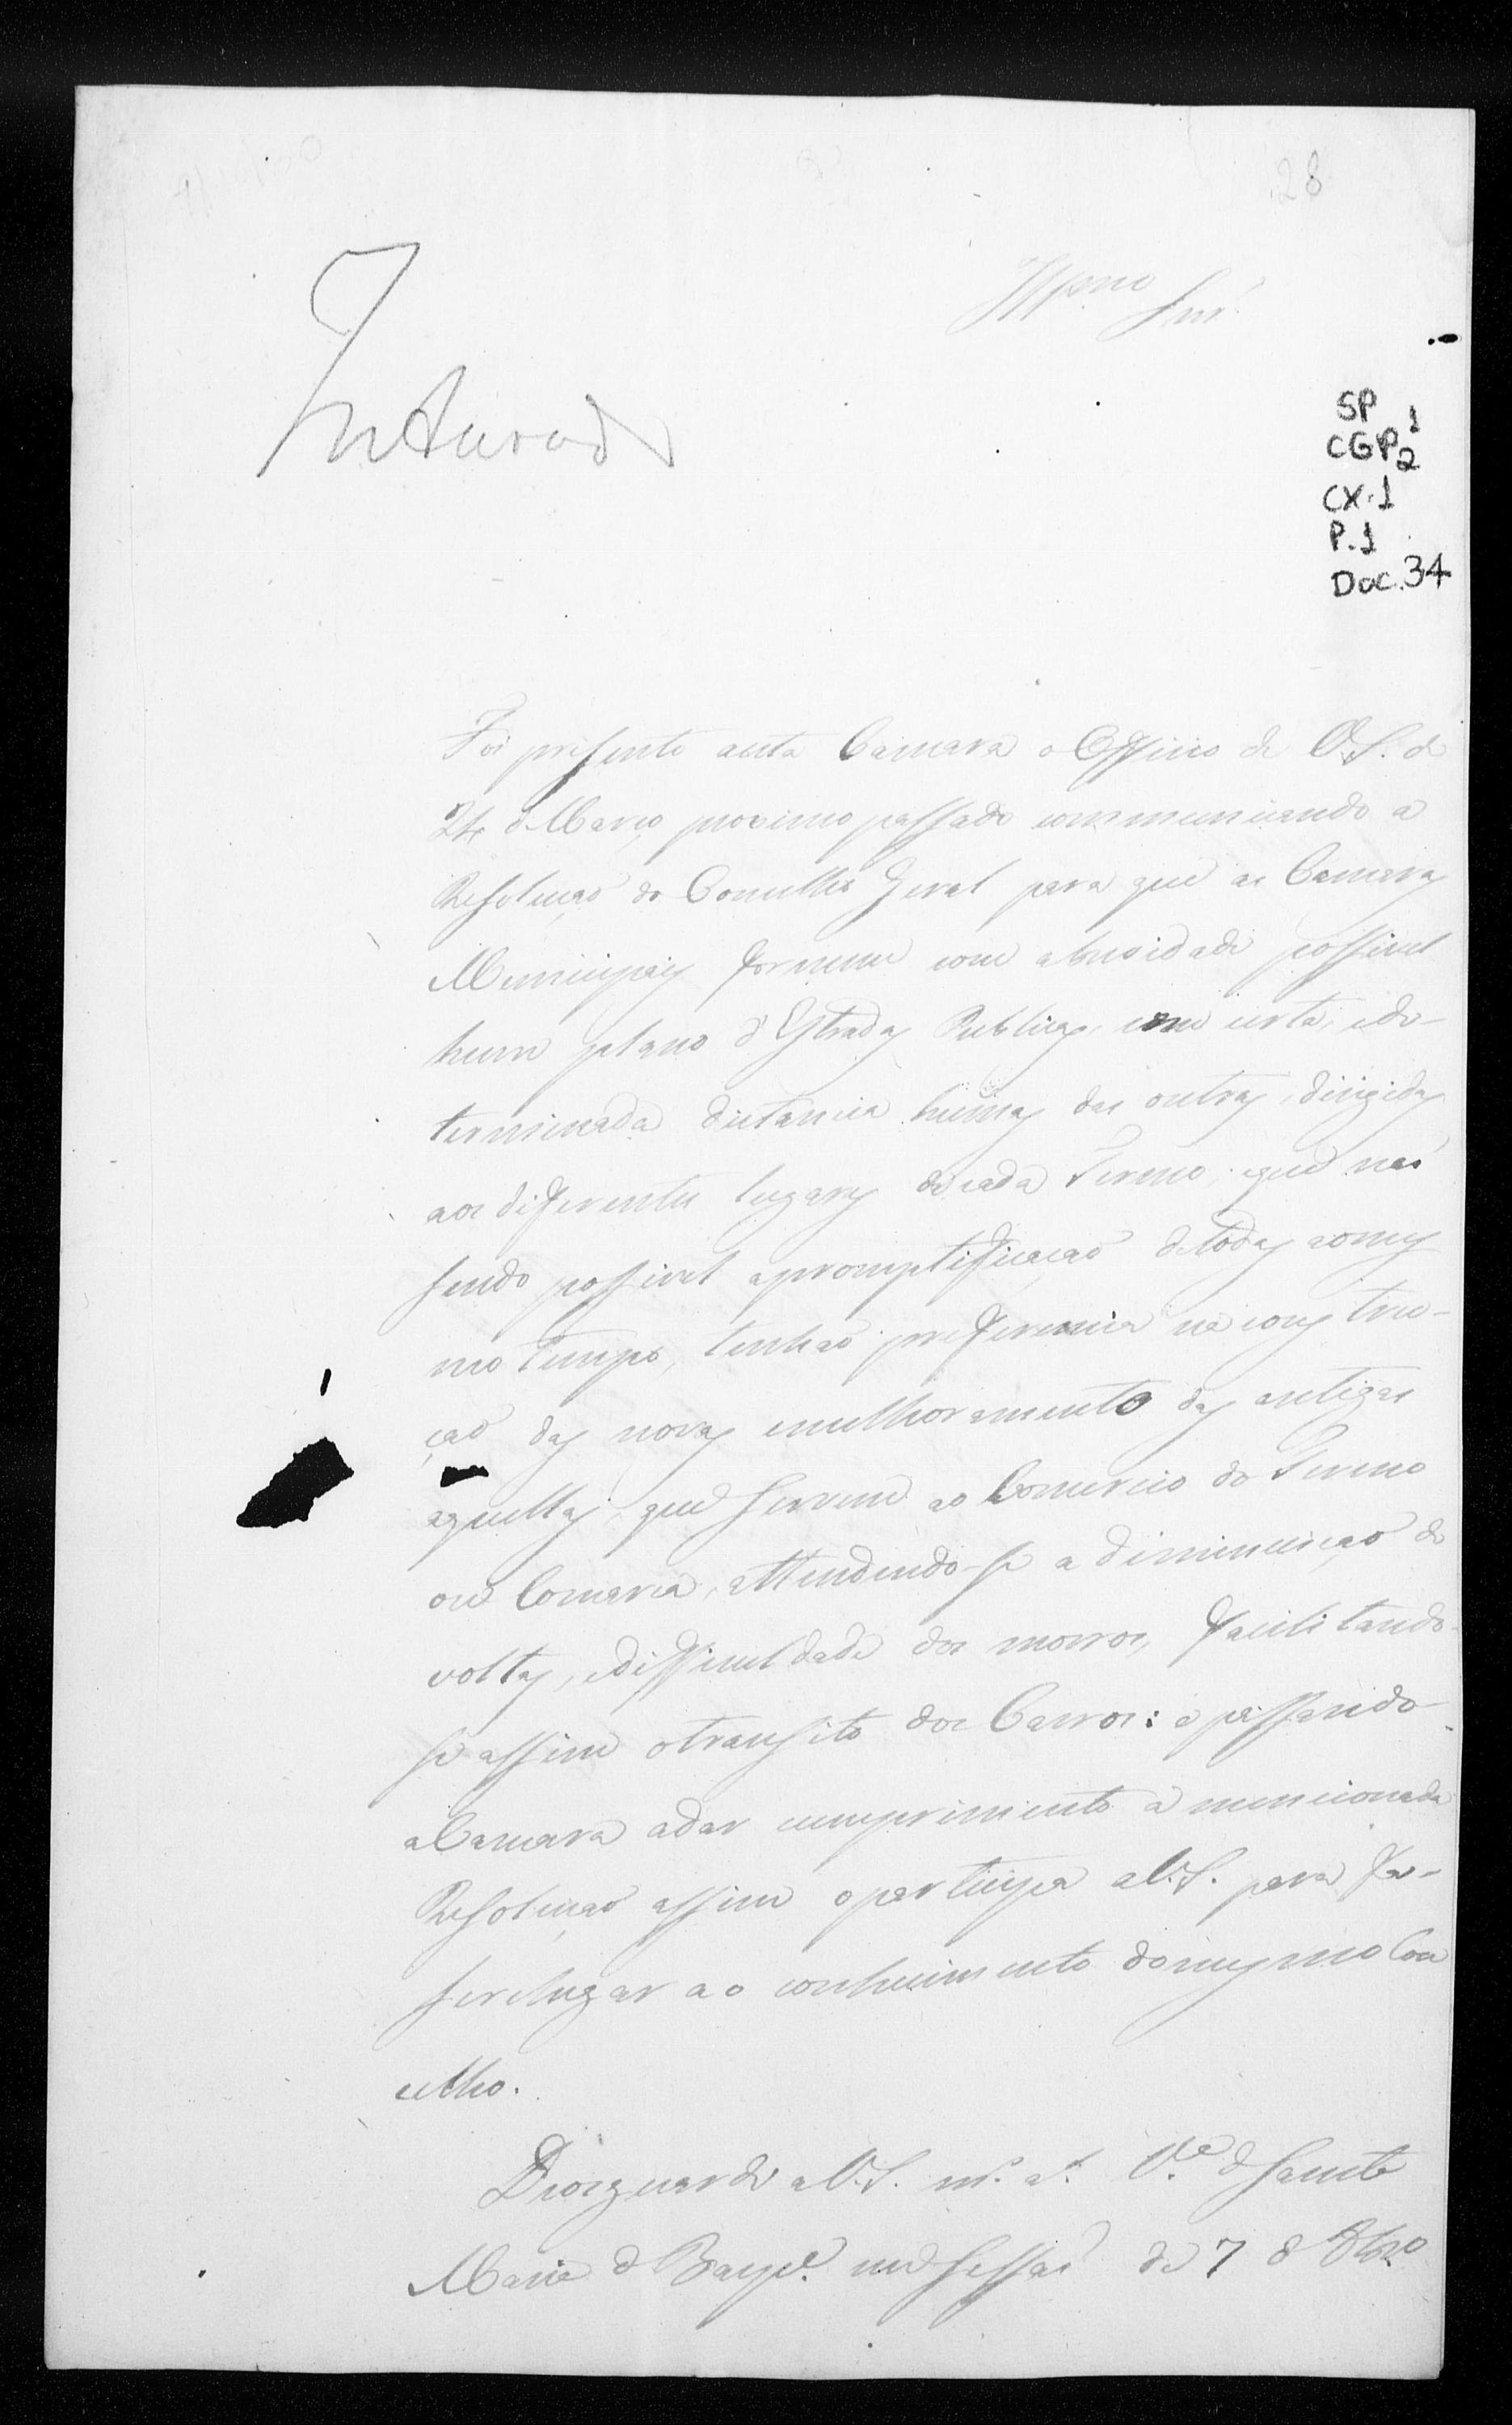 28
Illmo Snr.
Inteirado
SP
CGP 1
2
CX.1
P.1
Doc.34
Foi presente aesta Camara o Officio de V.S. de
24 de Março proximo passado communicando a
Resoluçaõ do Conselho Geral para que as Camaras
Municipaes formem com abrevidade possivel
hum plano d'Estradas Publicas, em certa, ede-
terminada distancia humas das outras, dirigidas
aos differentes lugares de cada Termo; que naõ
sendo possivel apromptificaçaõ detodas aomes
mo tempo, tenhaõ preferencia na constru-
çaõ das novas emelhoramento das antigas
aquellas, que servem ao Comercio do Termo
ou Comarca, attendendo-se a diminuiçaõ de
voltas, edifficuldade dos morros, facilitando-
se assim otransito dos Carros: e passando
aCamara adar cumprimento a mencionada
Resoluçaõ assim oparticipa aV.S. para fa-
ser chegar ao conhecimento domesmo Con
celho.
Deos guarde aV.S. ms. as. Va. de Santa
Maria de Baepe. em Sessaõ de 7 de 8bro